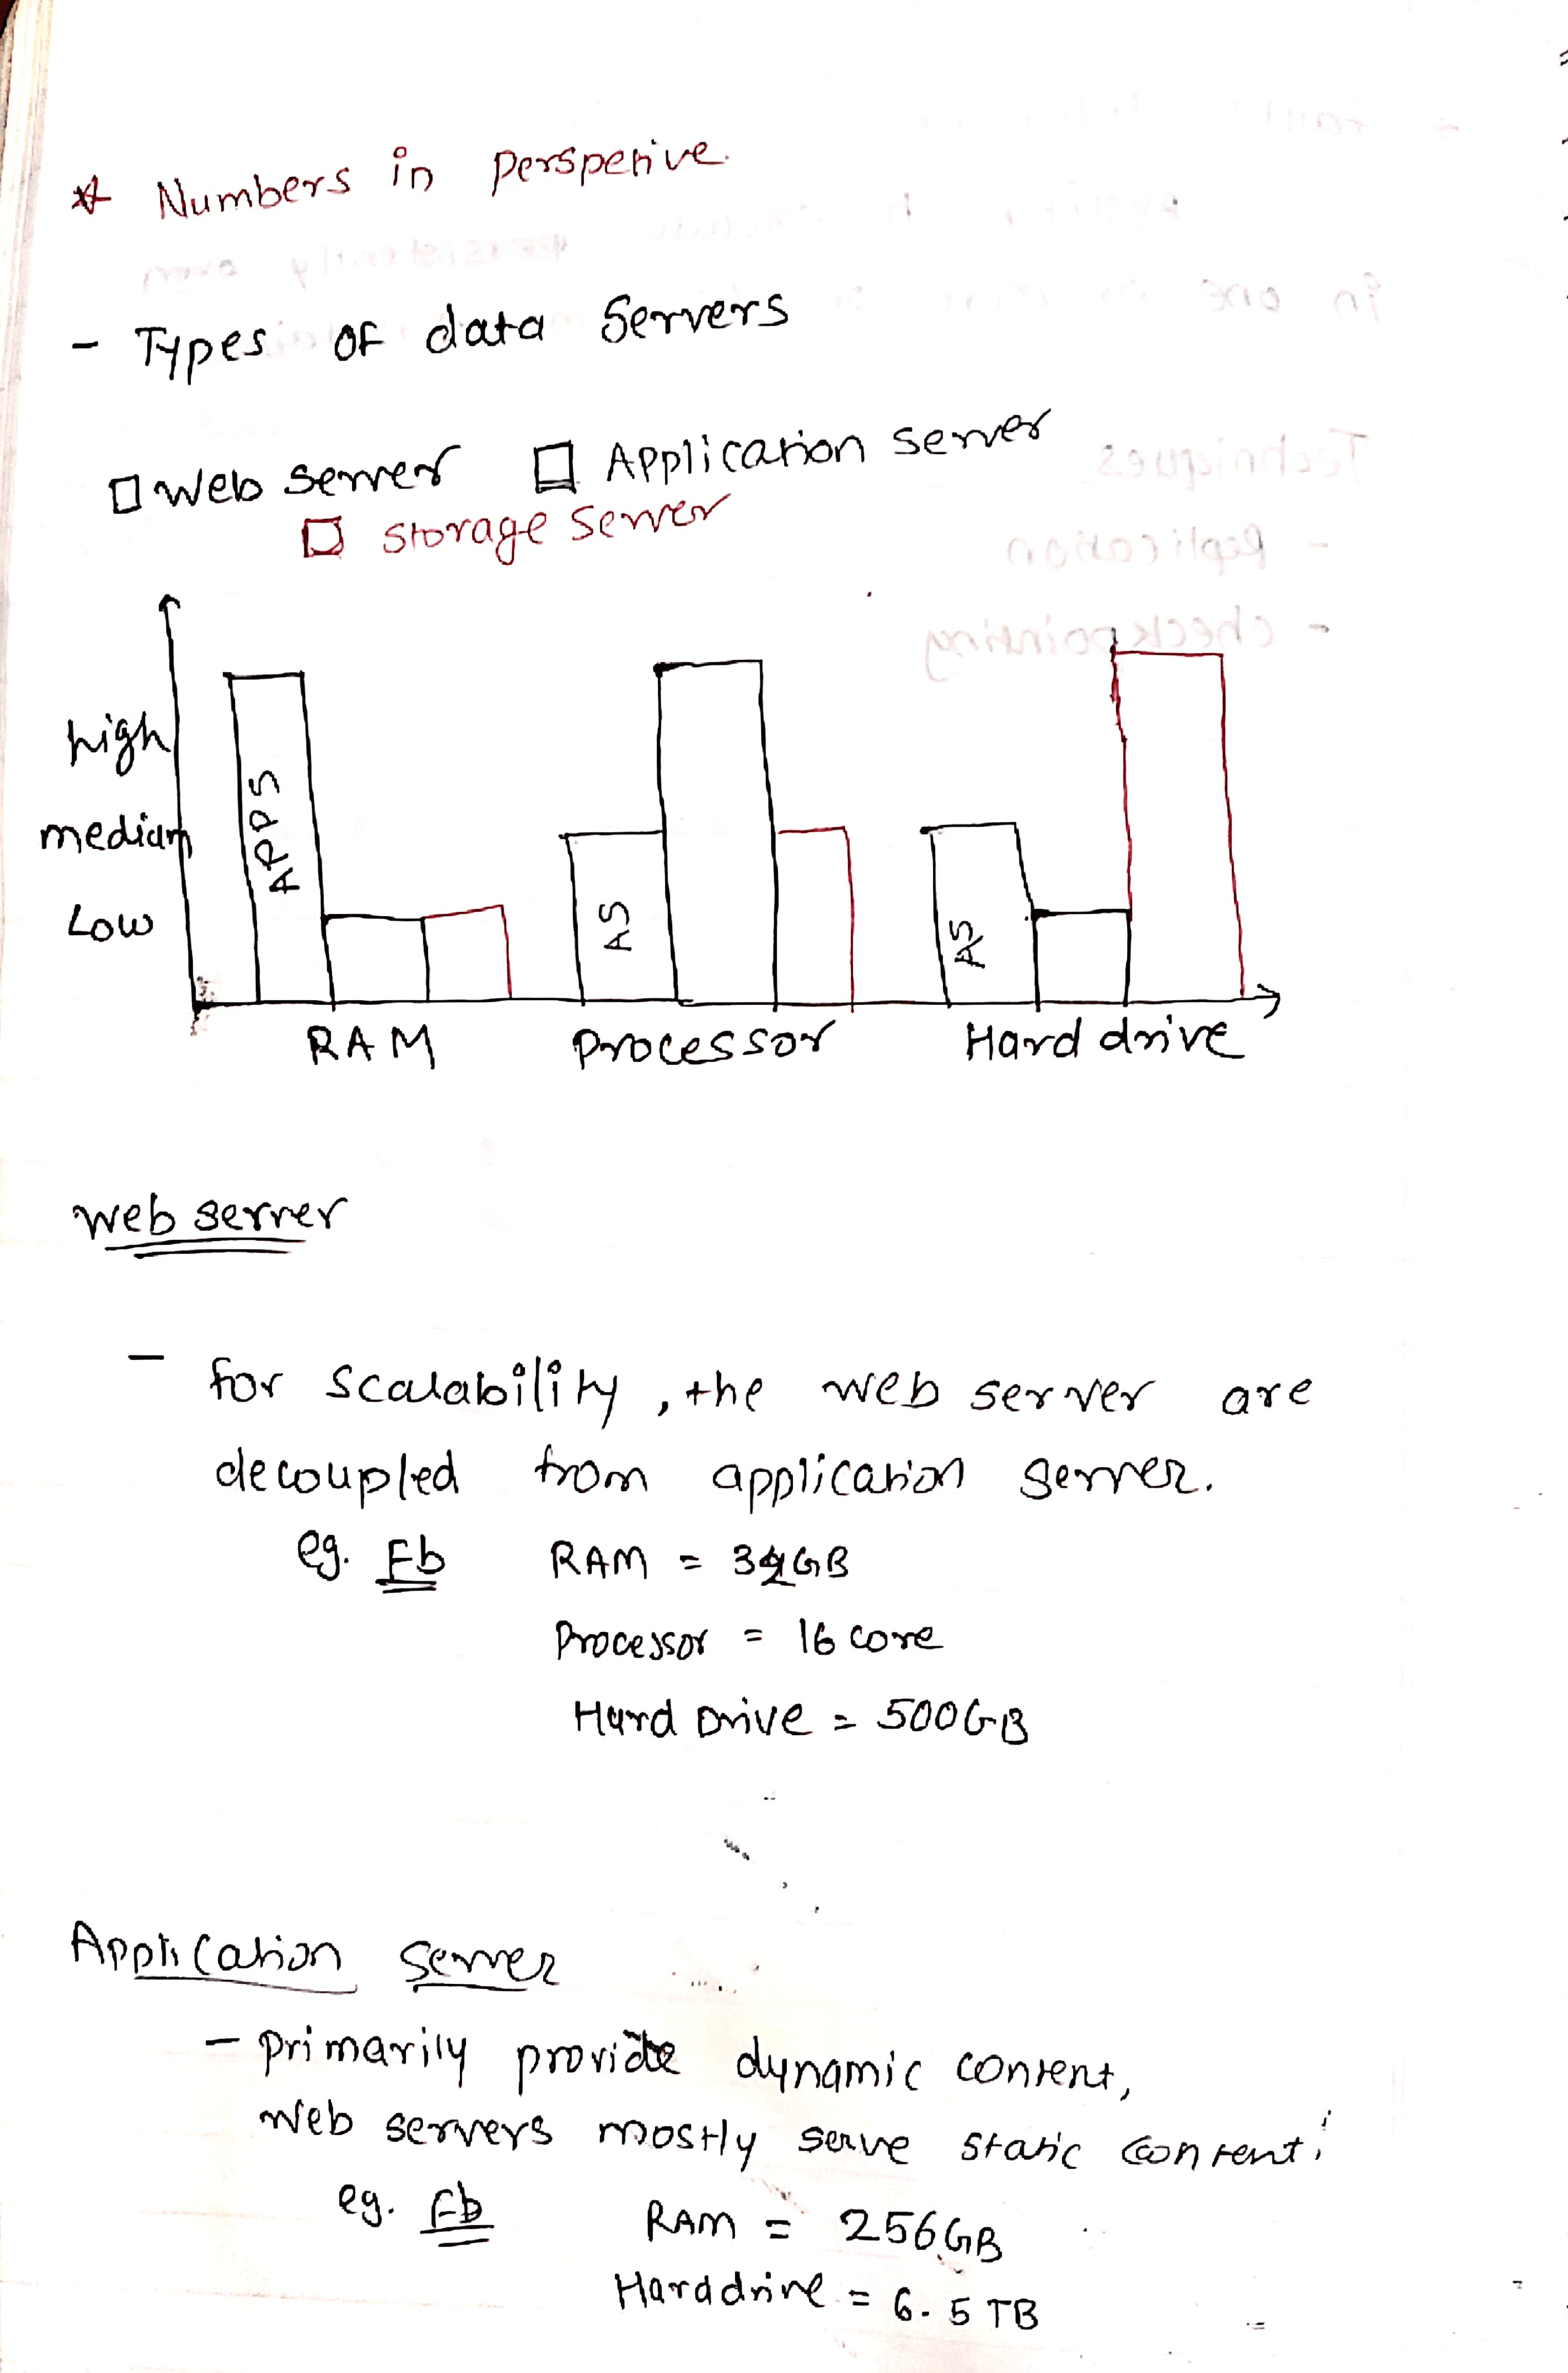 * Numbers in perspetive.
- Types of data Servers
□ Web server □ Application server
□ storage server
high
medium
Low
APPS
AS
AS
RAM Processor Hard drive
web server
- for scalability, the web server are
decoupled from application server.
eg. Fb RAM = 32GB
Processor = 16 core
Hard Drive = 500GB
Application server
- primarily provide dynamic content,
web servers mostly serve static content.
eg. Fb RAM = 256GB
Harddrive = 6.5 TB